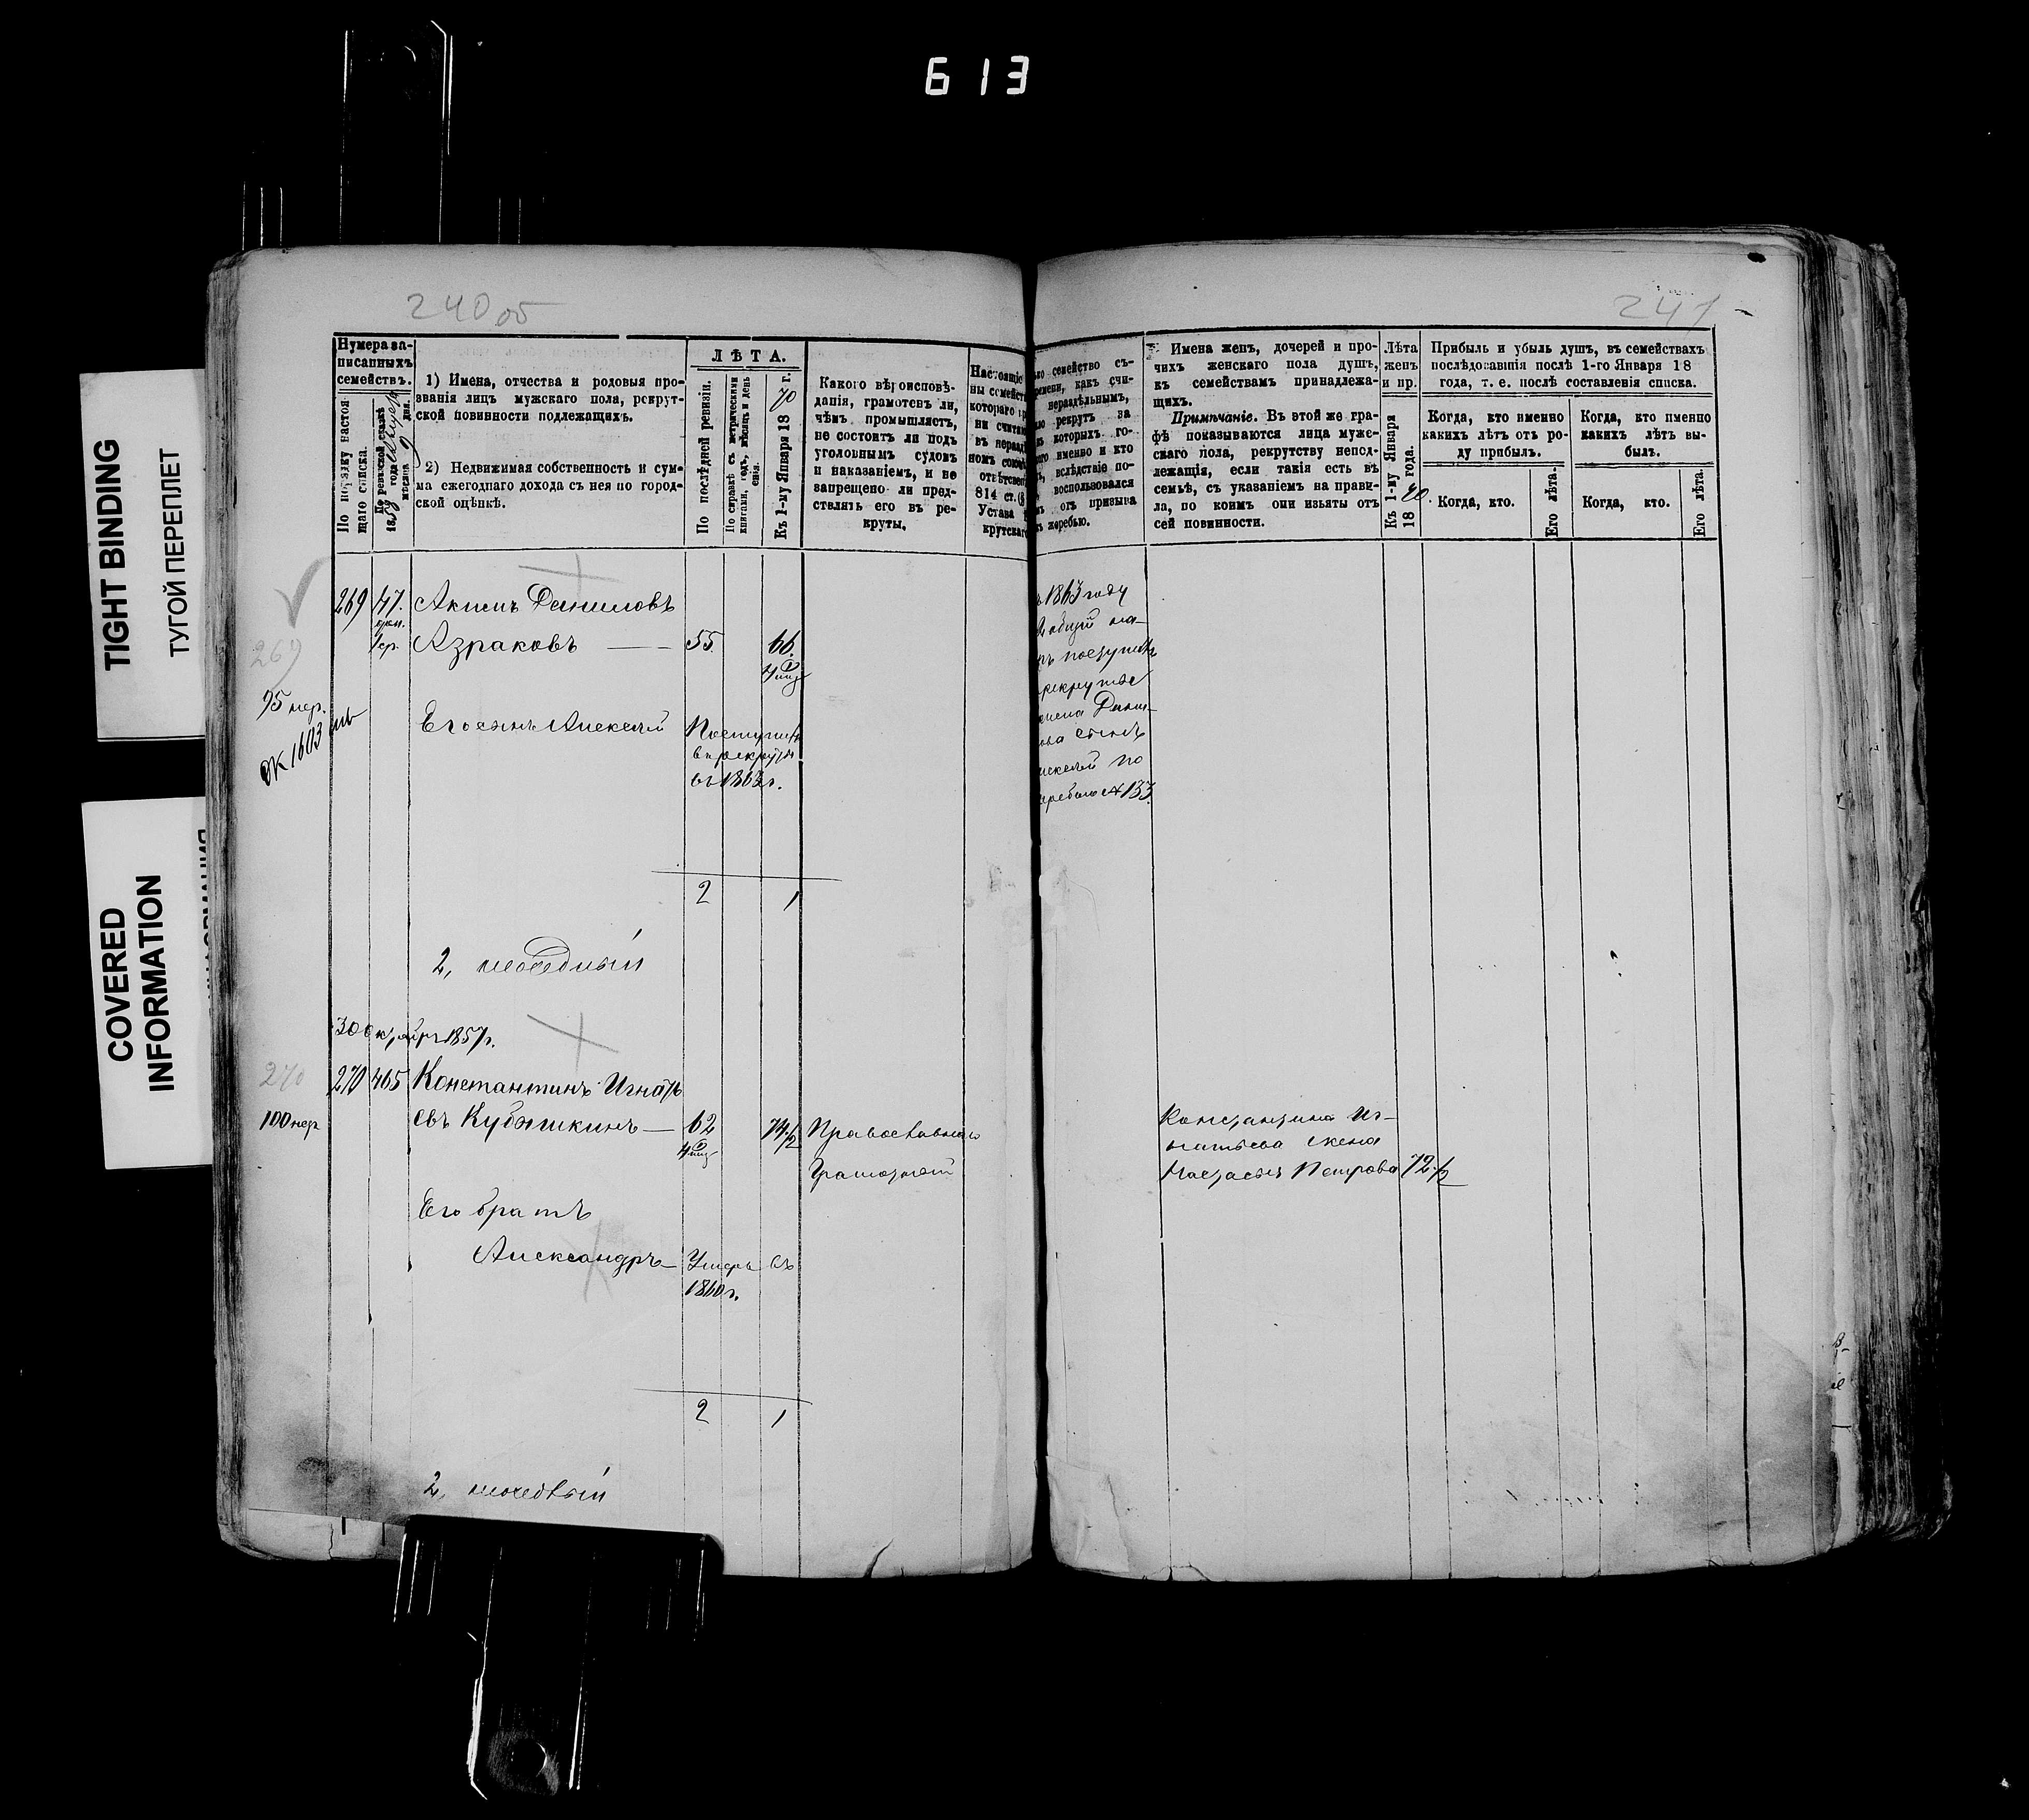 613
TIGHT BINDING
ТУГОЙ ПЕРЕПЛЕТ
COVERED
INFORMATION
240 об
241
Нумера за-
писанныхъ
семействъ.
По порядку настоя-
щаго списка.
По ревизской сказкѣ
1) Имена, отчества и родовыя про-
званія лицъ мужскаго пола, рекрут-
ской повинности подлежащихъ.
2) Недвижимая собственность и сум-
ма ежегоднаго дохода съ нея по город-
ской оцѣнкѣ.
ЛѢТА.
По послѣдней ревизіи.
По справкѣ съ метрическими
книгами, годъ, мѣсяцъ и день
Къ 1-му Января 1870 г.
Какого вѣроисповѣ-
данія, грамотенъ ли,
чѣмъ промышляетъ,
не состоитъ ли подъ
уголовнымъ судомъ
и наказаніемъ, и не
запрещено ли пред-
ставлять его въ ре-
круты.
Настоящіе
ны семейст
котораго
ни считаю
въ нераздѣ
номъ союз
отвѣтствен
814 ст. (
Устава
крутскаго
семейство съ-
ремени, какъ счи-
нераздѣльнымъ,
рекрутъ за
которыхъ го-
именно и кто
вслѣдствіе по-
воспользовался
отъ призыва
жеребью.
Имена женъ, дочерей и про-
чихъ женскаго пола душъ,
къ семействамъ принадлежа-
щихъ.
Примѣчаніе. Въ этой же гра-
фѣ показываются лица муже-
скаго пола, рекрутству непод-
лежащія, если такія есть въ
семьѣ, съ указаніемъ на прави-
ла, по коимъ они изъяты отъ
сей повинности.
Лѣта
женъ
и пр.
Къ 1-му Января
1870 года.
Прибыль и убыль душъ, въ семействахъ
послѣдовавшія послѣ 1-го Января 18
года, т. е. послѣ составленія списка.
Когда, кто именно
какихъ лѣтъ отъ ро-
ду прибылъ.
Когда, кто именно
какихъ лѣтъ вы-
былъ.
Когда, кто.
Его лѣта.
Когда, кто.
Его лѣта.
269 47. Акимъ Даниловъ
Азраковъ — 55. 66.
269
95 пер.
Его сынъ Алексей Поступилъ
в рекруты
въ 1863 г.
1863 году
общій на-
поступилъ
рекруты
Дани-
лова сынъ
Алексей по
жребью № 133.
2 1
2, неоседлый
30 Октября 1857 г.
270
270 465 Константинъ Игнать-
100 пер
евъ Кубышкинъ — 62 74 1/2 Православнаго
Грамотный
Константина Иг-
натьева жена
Настасья Петрова 72 1/2
Его братъ
Александръ — Умеръ въ
1860 г.
2 1
2, неоседлый